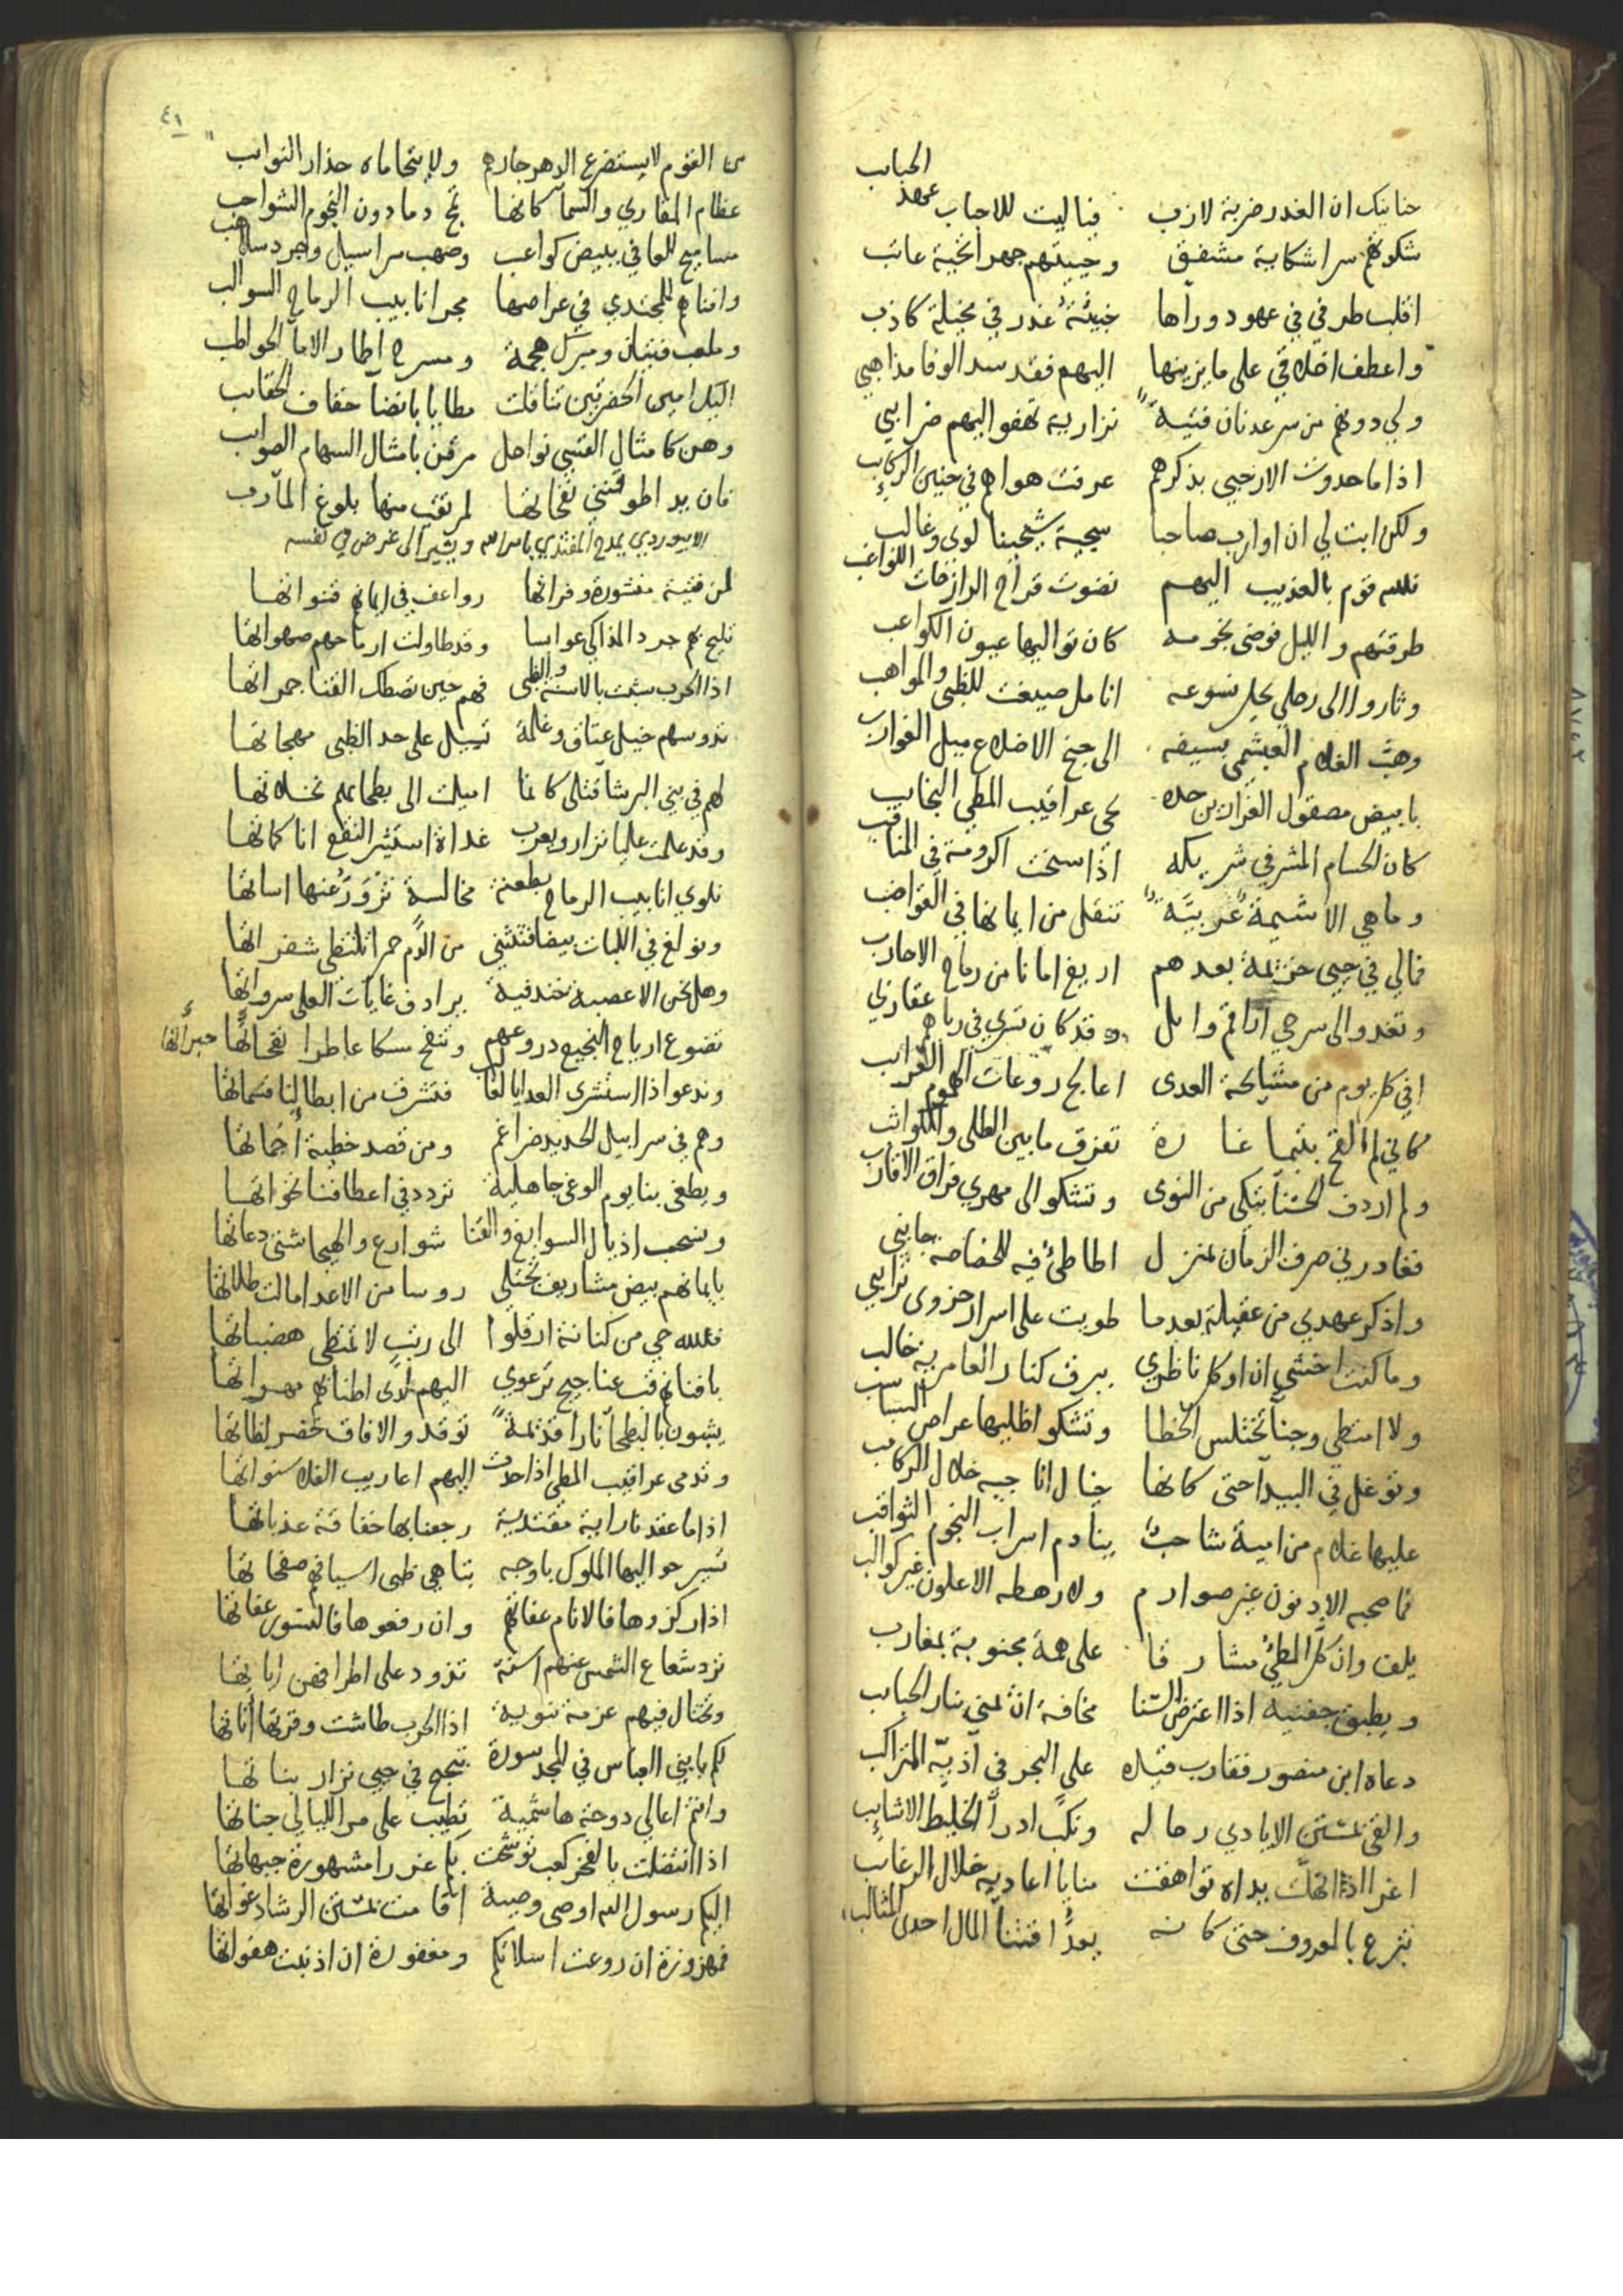 حنانيك ان الغدر ضربة لازب فياليت للاحباب عهد الحبايب
شكوتهم سرا شكاية مشفق وحييتهم جهرا تحية عاتب
اقلب طرفي في عهود وراها خبيئة غدر في مخيلة كاذب
واعطف اخلاقي على ما يزينها اليهم فقد سد الوفا مذاهبي
ولي دونهم من سر عدنان فتية نزارية تهفو اليهم ضرايبي
اذا ما حدوت الارحبي بذكرهم عرفت هواهم في حنين الركايب
ولكن ابت لي ان اوارب صاحبا سجية شيخينا لوى وغالب
فلله قوم بالعذيب اليهم نضوت قراح الرازحات اللواغب
طرقتهم والليل فوضى نجومه كان تواليها عيون الكواعب
وثاروا الى رحلي يحل نسوعه انامل صيغت للظبى والمواهب
وهب الغلام العبشمي بسيفه الى جنح الاضلاع ميل الغوارب
بابيض مصقول الغرارين حده نحى عراقيب المطي النجايب
كان الحسام المشرفي شريكه اذا سنحت اكرومة في المناقب
وما هي الا شيمة عربية تنقل من ايماننا في القواضب
فمالي في حيي خزيمة بعدهم اريغ امانا من رماح الاحارب
وتغدو الى سرحي اراقم وايل وقد كان تسري في رباهم عقاربي
افي كل يوم من مشايحة العدى اعالج روعات الهموم الغرايب
كاني لم القح بثيما غارة تفرق ما بين الطلى والكواثب
ولم اردف الحسنا تبكي من النوى وتشكو الى مهري فراق الاقارب
فغادرني صرف الزمان بمنزل اطاطئ فيه للخصاصة جانبي
واذكر عهدي من عقيلة بعدما طويت على اسرار حزوى ترايبي
وما كنت اخشى ان اوكل ناظري ببرق كنار العامرية خالب
ولا امتطي وجنا تختلس الخطا وتشكو اظليها عراص السباسب
وتوغل في البيدا حتى كانها خيال اناجيه خلال الركايب
عليها غلام من امية شاحب ينادم اسراب النجوم الثواقب
فما صحبه الادنون غير صوارم ولا رهطه الاعلون غير كواكب
يلف وان كل المطي مشارقا على همة مجنوبة بمغارب
ويطبق جفنيه اذا اعترض السنا مخافة ان يمنى بنار الحباحب
دعاه ابن منصور فقارب قيده على البحر في آذيه المتراكب
والقى بمستن الايادي رحاله ونكب ادرا الخليط الاشايب
اغر اذا انهلت يداه تواهقت منايا اعاديه خلال الرغايب
تبرع بالمعروف حتى كانه يعد اقتنا المال احدى المثالب
٤١
من القوم لا يستضرع الدهر جارهم ولا يتحاماه حذار النوايب
عظام المقاري والسما كانها تمج دما دون النجوم الشواحب
مساميح للعافي ببيض كواعب وصهب مراسيل وجرد سلاهب
وافناهم للمجتدي في عراصها مجر انابيب الرماح السوالب
وملعب فتيان ومبرك هجمة ومسرح اطار الاما الحواطب
اليك امين الحضرتين تناقلت مطايا بانضا خفاف الحقايب
وهن كامثال القسي نواحل مرقن بامثال السهام الصوايب
فان يد اطوقتني نفحاتها لمرتقب منها بلوغ المآرب
الابيوردي يمدح المقتدي بامر الله ويشير الى غرض في نفسه
لمن فتية منشورة وفراتها رواعف في ايمانهم قنواتها
تليح بهم جرد المذاكي عوابسا وقد طاولت ارماحهم صهواتها
اذا الحرب شبت بالاسنة والظبى فهم حين تصطك القنا جمراتها
تدوسهم خيل عتاق وغلمة تسيل على حد الظبى مهجاتها
لهم في بني البرشا قتلى كانما اميلت الى بطحائهم نخلاتها
وقد علمت عليا نزار ويعرب غداة استثير النقع انا كماتها
نلوي انابيب الرماح بطعنة مخالسة تزور عنها اساتها
ونولغ في اللبات بيضا فتنثني من الدم حمرا تلتظي شفراتها
وهل نحن الا عصبة خندفية يرادف غايات العلى سرواتها
تضوع ارياح النجيع دروعهم وتنفح مسكا عاطرا نفحاتها حبراتها
وندعو اذا استشرى العدا يالغالب فتشرف من ابطالنا قسماتها
وهم في سرابيل الحديد ضراغم ومن قصد خطية أجماتها
ويطغى بنا يوم الوغى جاهلية تردد في اعطافنا نخواتها
ونسحب اذيال السوابغ والقنا شوارع والهيجا شتى دعاتها
بايمانهم بيض مشاريف تختلي روسا من الاعدا مالت طلاتها
فلله حي من كنانة ارقلوا الى رتب لا تمتطى هضباتها
بافنائهم قب عناجيج ترعوي اليهم لدى اطنابهم مهراتها
يشبون بالبطحا نارا قديمة توقد والافاق تخضر لظاتها
وتدمى عراقيب المطى اذا حدت اليهم اعاريب الفلا سنواتها
اذا ما عقدنا راية مقتدية رجعنا بها خفاقة عذباتها
تسير حواليها الملوك باوجه تباهي ظبى اسيافهم صفحاتها
اذا ركزوها فالانام عفاتهم وان رفعوها فالنسور عفاتها
ترد شعاع الشمس عنهم اسنة تذود على اطرافهن اياتها
وتختال فيهم عزمة نبوية اذا الحرب طاشت وقرتها أناتها
لكم يا بني العباس في المجد سورة تبجح في حيي نزار بناتها
وانتم اعالي دوحة هاشمية تطيب على مر الليالي جناتها
اذا انتضلت بالفخر كعب توشحت بكم غررا مشهورة جبهاتها
اليكم رسول الله اوصى وصية اقامت بمستن الرشاد غواتها
فمهزوزة ان روعت اسلاتكم ومغفورة ان اذنبت هفواتها